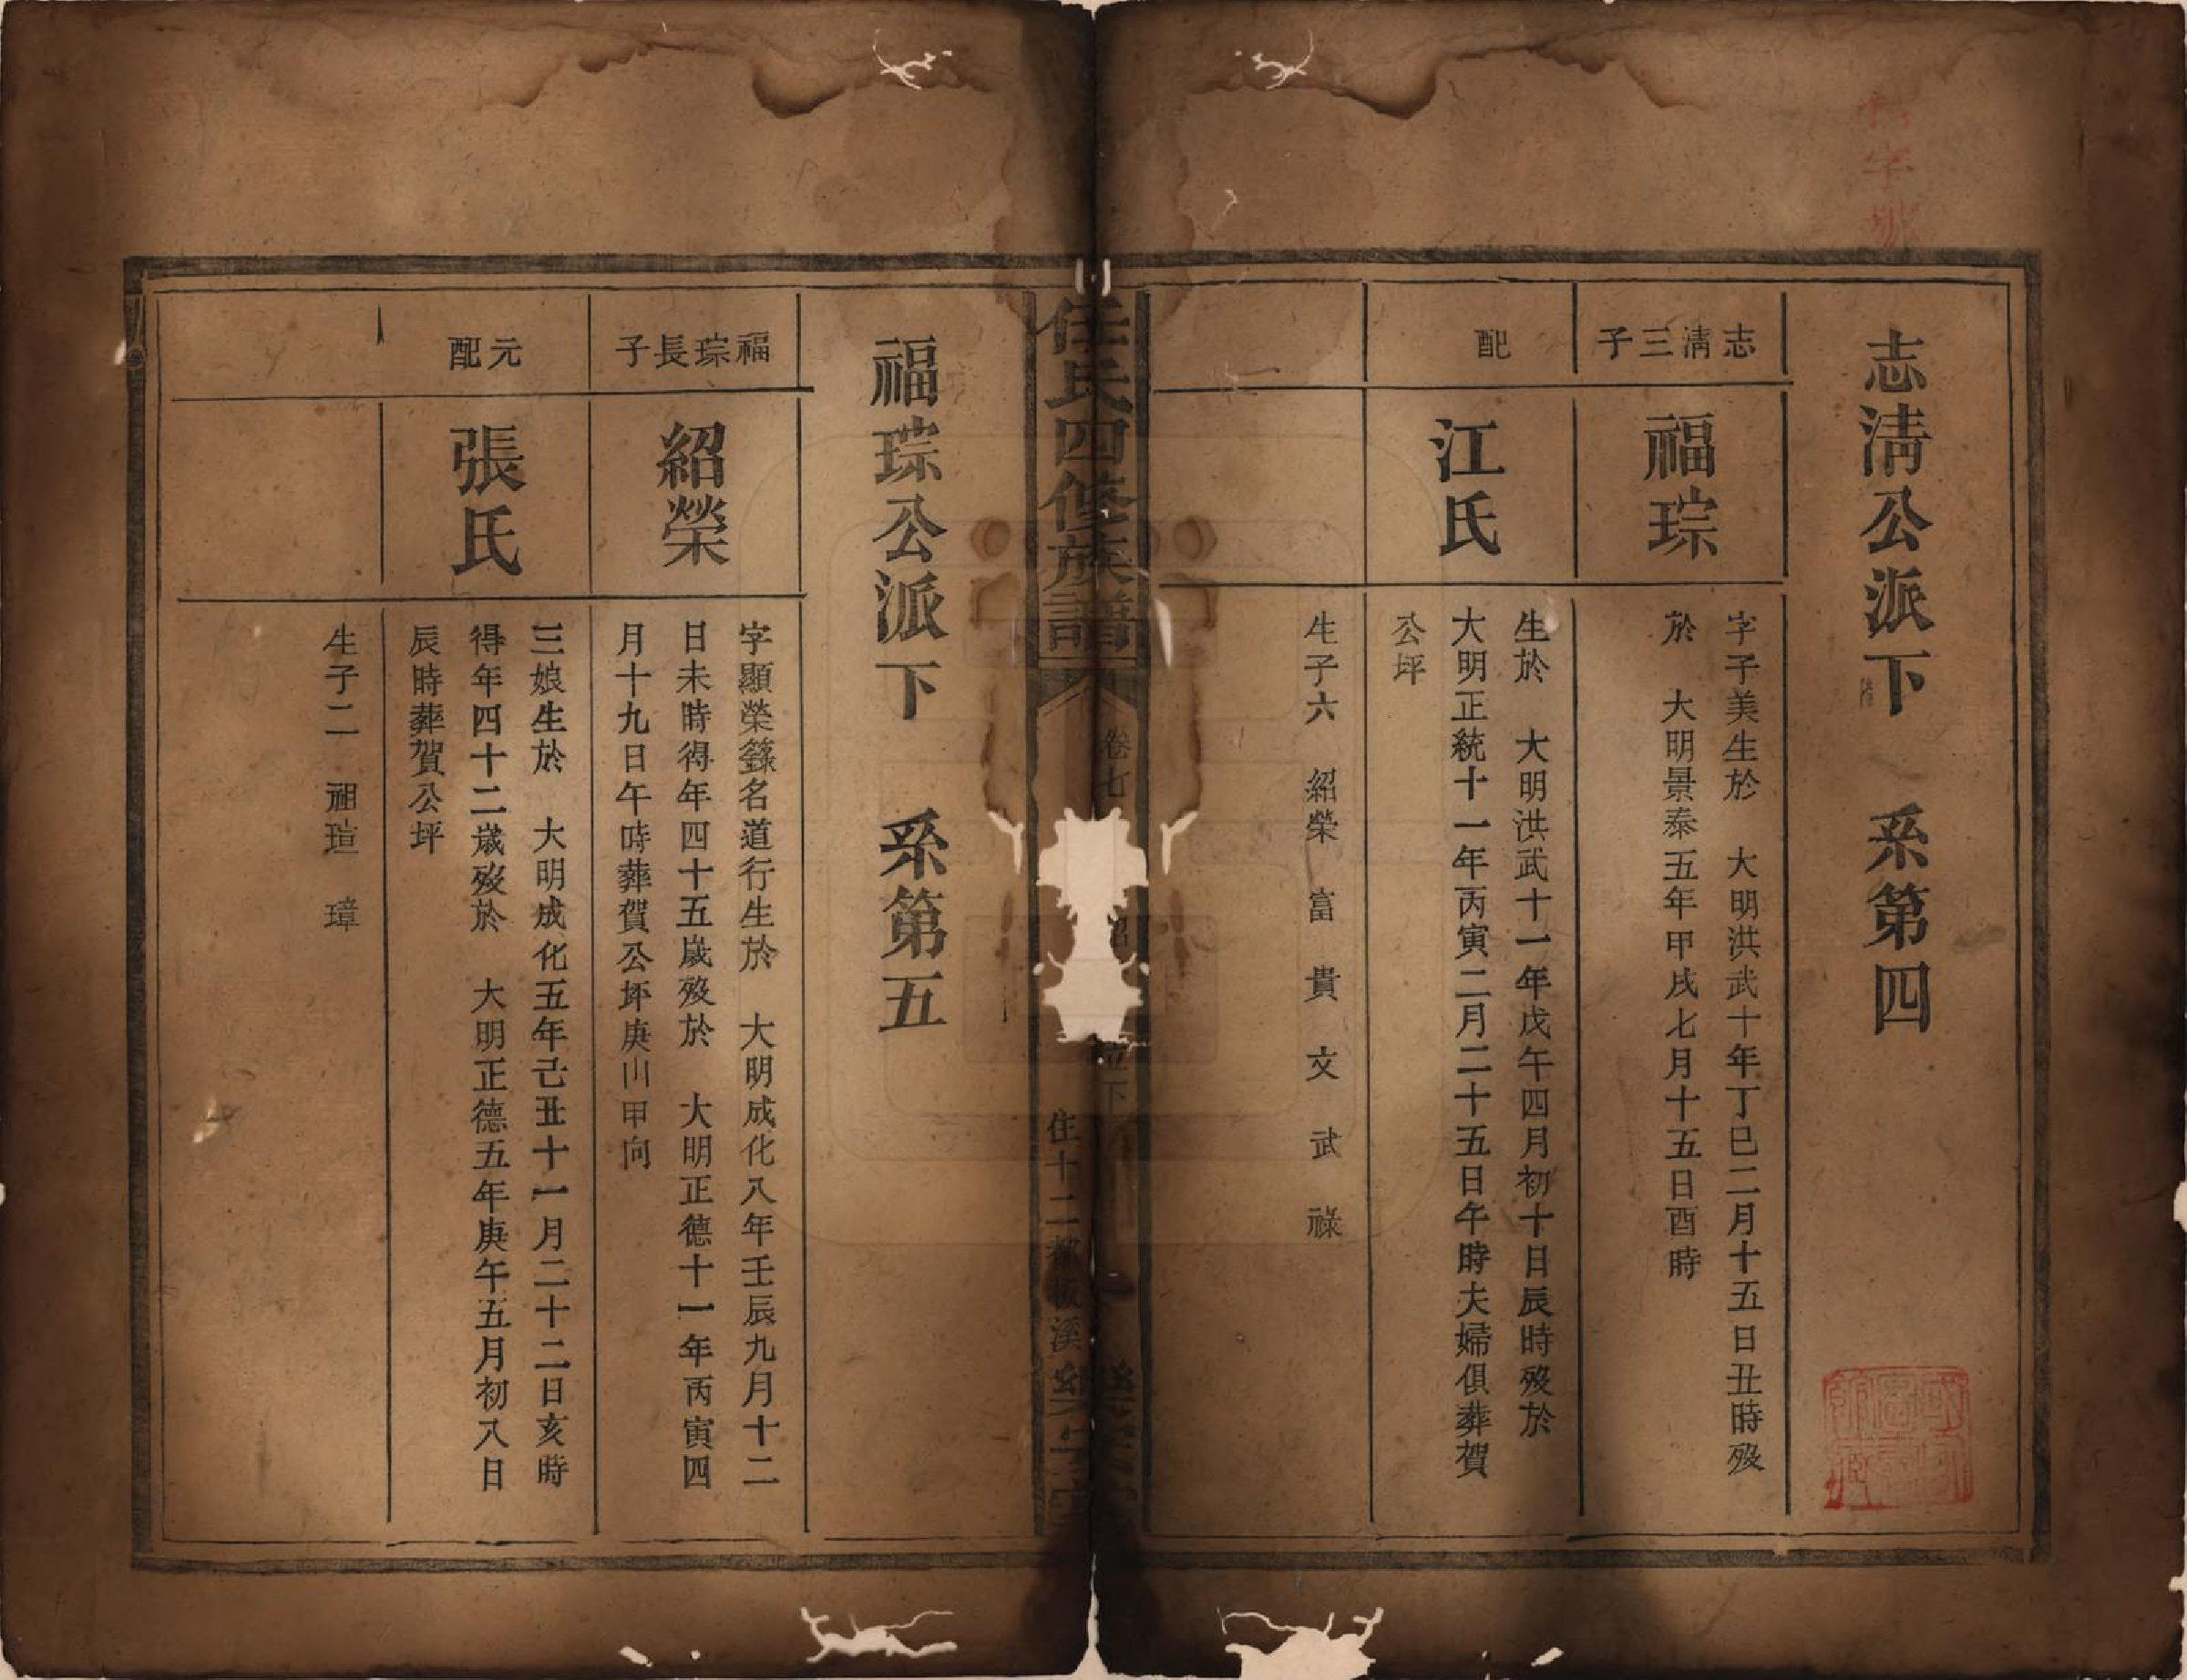 志清公派下　系第四
志清三子
福琮
字子美生於　大明洪武十年丁巳二月十五日丑時殁
於　大明景泰五年甲戌七月十五日酉時
配
江氏
生於　大明洪武十一年戊午四月初十日辰時殁於
大明正統十一年丙寅二月二十五日午時夫婦俱葬賀
公坪
生子六　紹榮　富　貴　文　武　祿
任氏四修族譜
卷七
住十二都板溪
福琮公派下　系第五
福琮長子
紹榮
字顯榮籙名道行生於　大明成化八年壬辰九月十二
日未時得年四十五歲殁於　大明正德十一年丙寅四
月十九日午時葬賀公坪庚山甲向
元配
張氏
三娘生於　大明成化五年己丑十一月二十二日亥時
得年四十二歲殁於　大明正德五年庚午五月初八日
辰時葬賀公坪
生子二　祖瑄　璋